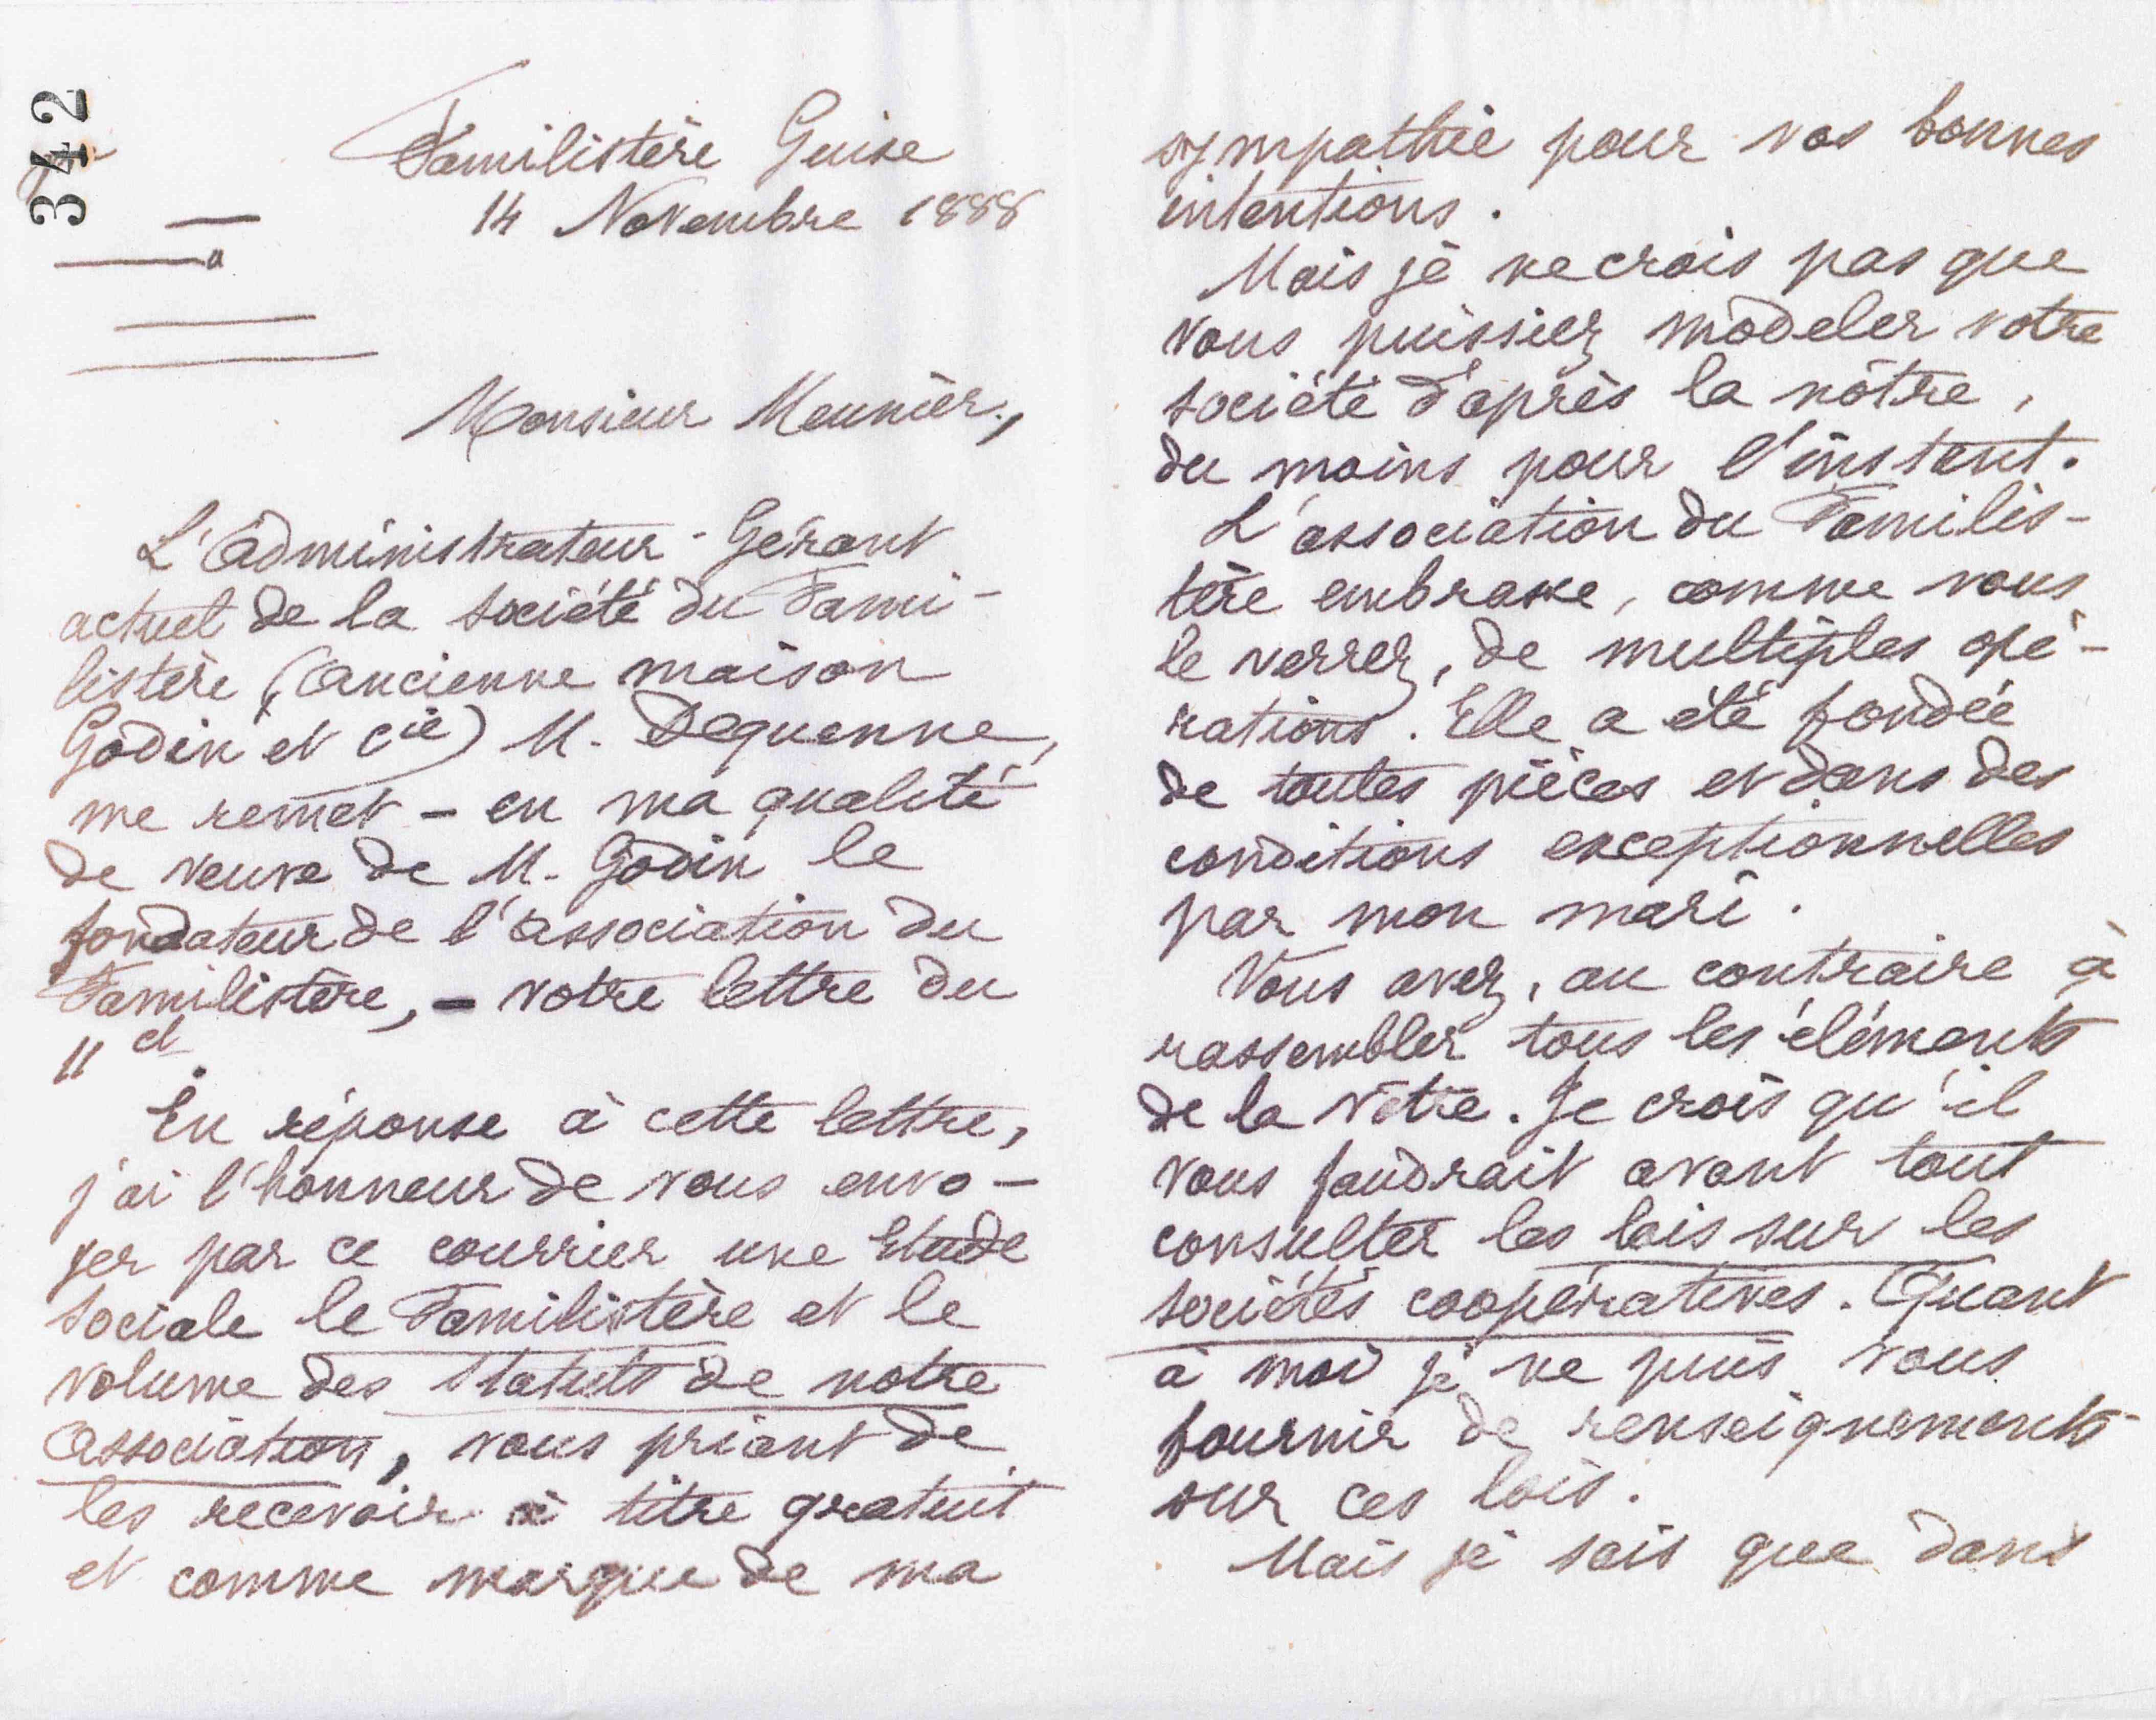 342
Familistère Guise
14 Novembre 1888
Monsieur Meunier,
L'administrateur-Gérant
actuel de la société du Fami-
listère (ancienne maison
Godin et Cie) M. Dequenne,
me remet - en ma qualité
de veuve de M. Godin le
fondateur de l'association du
Familistère, - votre lettre du
11 ct.
En réponse à cette lettre,
j'ai l'honneur de vous envo-
yer par ce courrier une Etude
sociale le Familistère et le
volume des Statuts de notre
association, vous priant de
les recevoir à titre gratuit
et comme marque de ma
sympathie pour vos bonnes
intentions.
Mais je ne crois pas que
vous puissiez modeler votre
société d'après la nôtre,
du moins pour l'instant.
L'association du Familis-
tère embrasse, comme vous
le verrez, de multiples opé-
rations. Elle a été fondée
de toutes pièces et dans des
conditions exceptionnelles
par mon mari.
Vous avez, au contraire à
rassembler tous les éléments
de la vôtre. Je crois qu'il
vous faudrait avant tout
consulter les lois sur les
sociétés coopératives. Quant
à moi je ne puis vous
fournir de renseignements
sur ces lois.
Mais je sais que dans